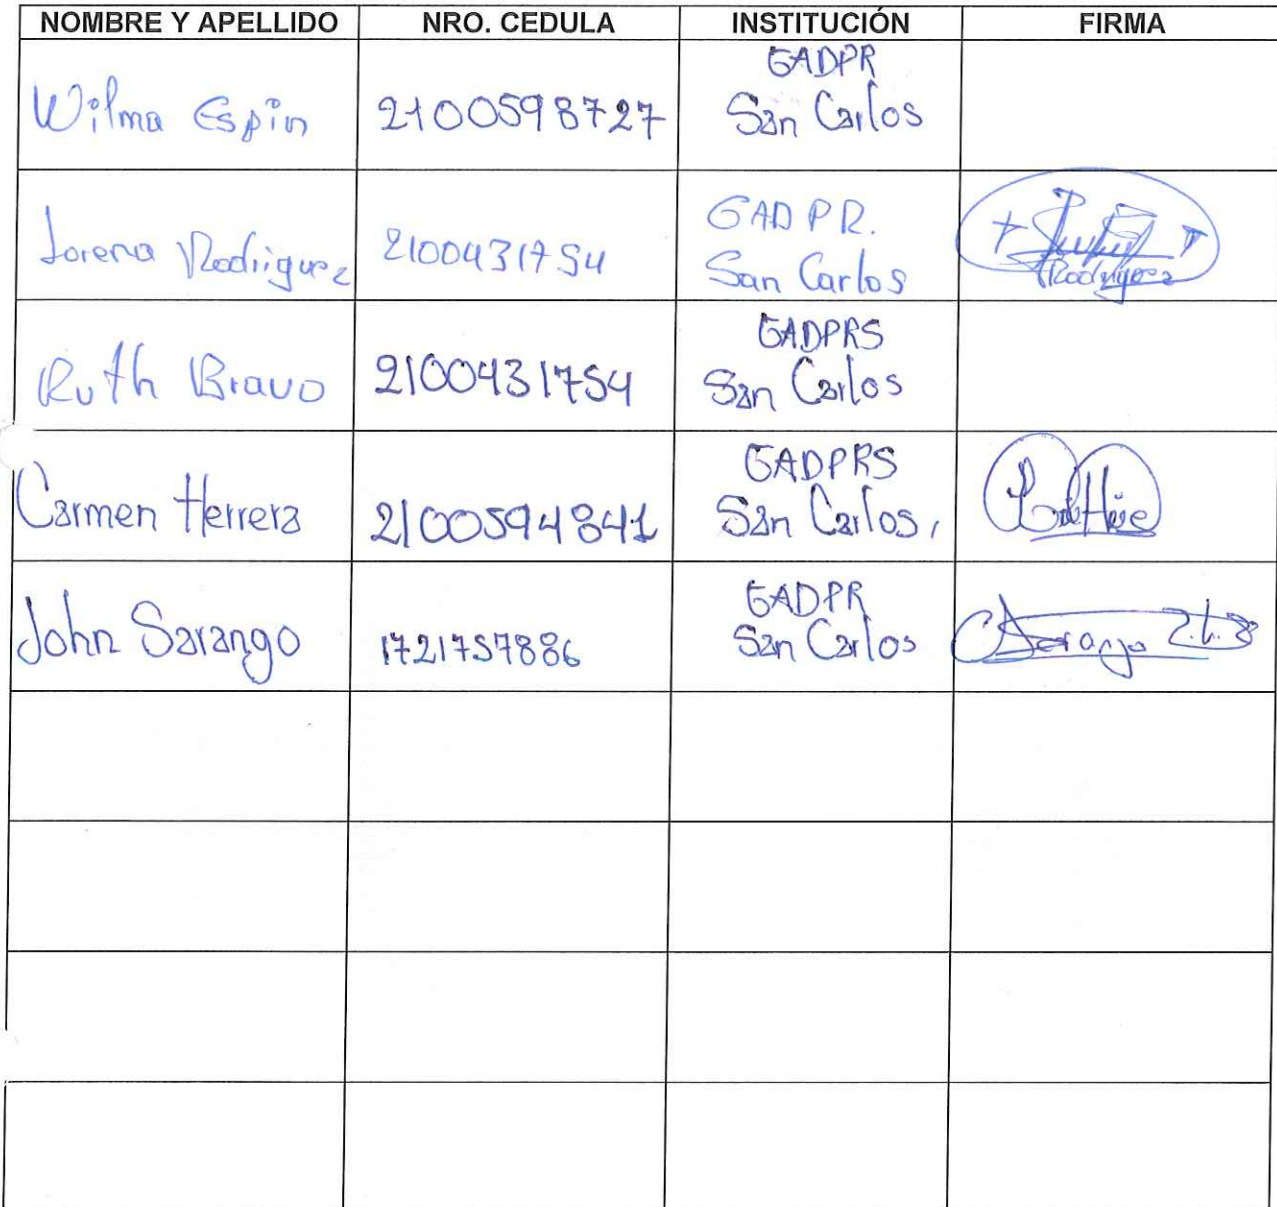 NOMBRE Y APELLIDO NRO. CEDULA INSTITUCIÓN FIRMA
Wilma Espin 2100598727 GADPR
San Carlos
Lorena Rodriguez 2100431754 GADPR.
San Carlos
Rodriguez
Ruth Bravo 2100431754 GADPRS
San Carlos
Carmen Herrera 2100594841 GADPRS
San Carlos,
John Sarango 1721757886 GADPR
San Carlos
Sarango